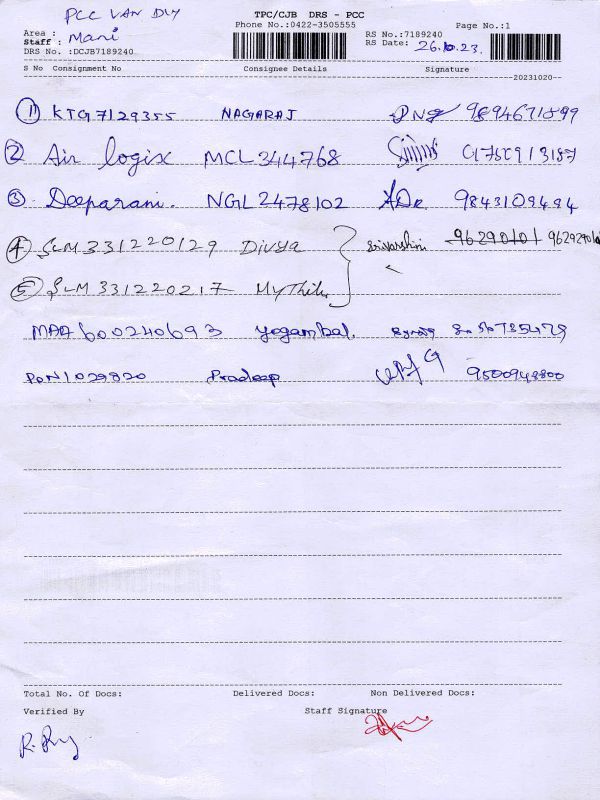 PCC VAN DLY
TPC/CJB DRS - PCC
Phone No.:0422-3505555
Page No.:1
Area :
Staff : Mani
DRS No. :DCJB7189240
RS No.:7189240
RS Date: 26.10.23.
S No Consignment No Consignee Details Signature
20231020
1 KTG7129355 NAGARAJ
2 Air logix MCL344768
3 Deeparani. NGL2478102 9843109494
4 SLM331220129 Divya Srivarshini
5 SLM331220217 Mythili
MAA600240693 Yogambal.
PON1029820 Pradeep 9500948800
Total No. Of Docs: Delivered Docs: Non Delivered Docs:
Verified By Staff Signature